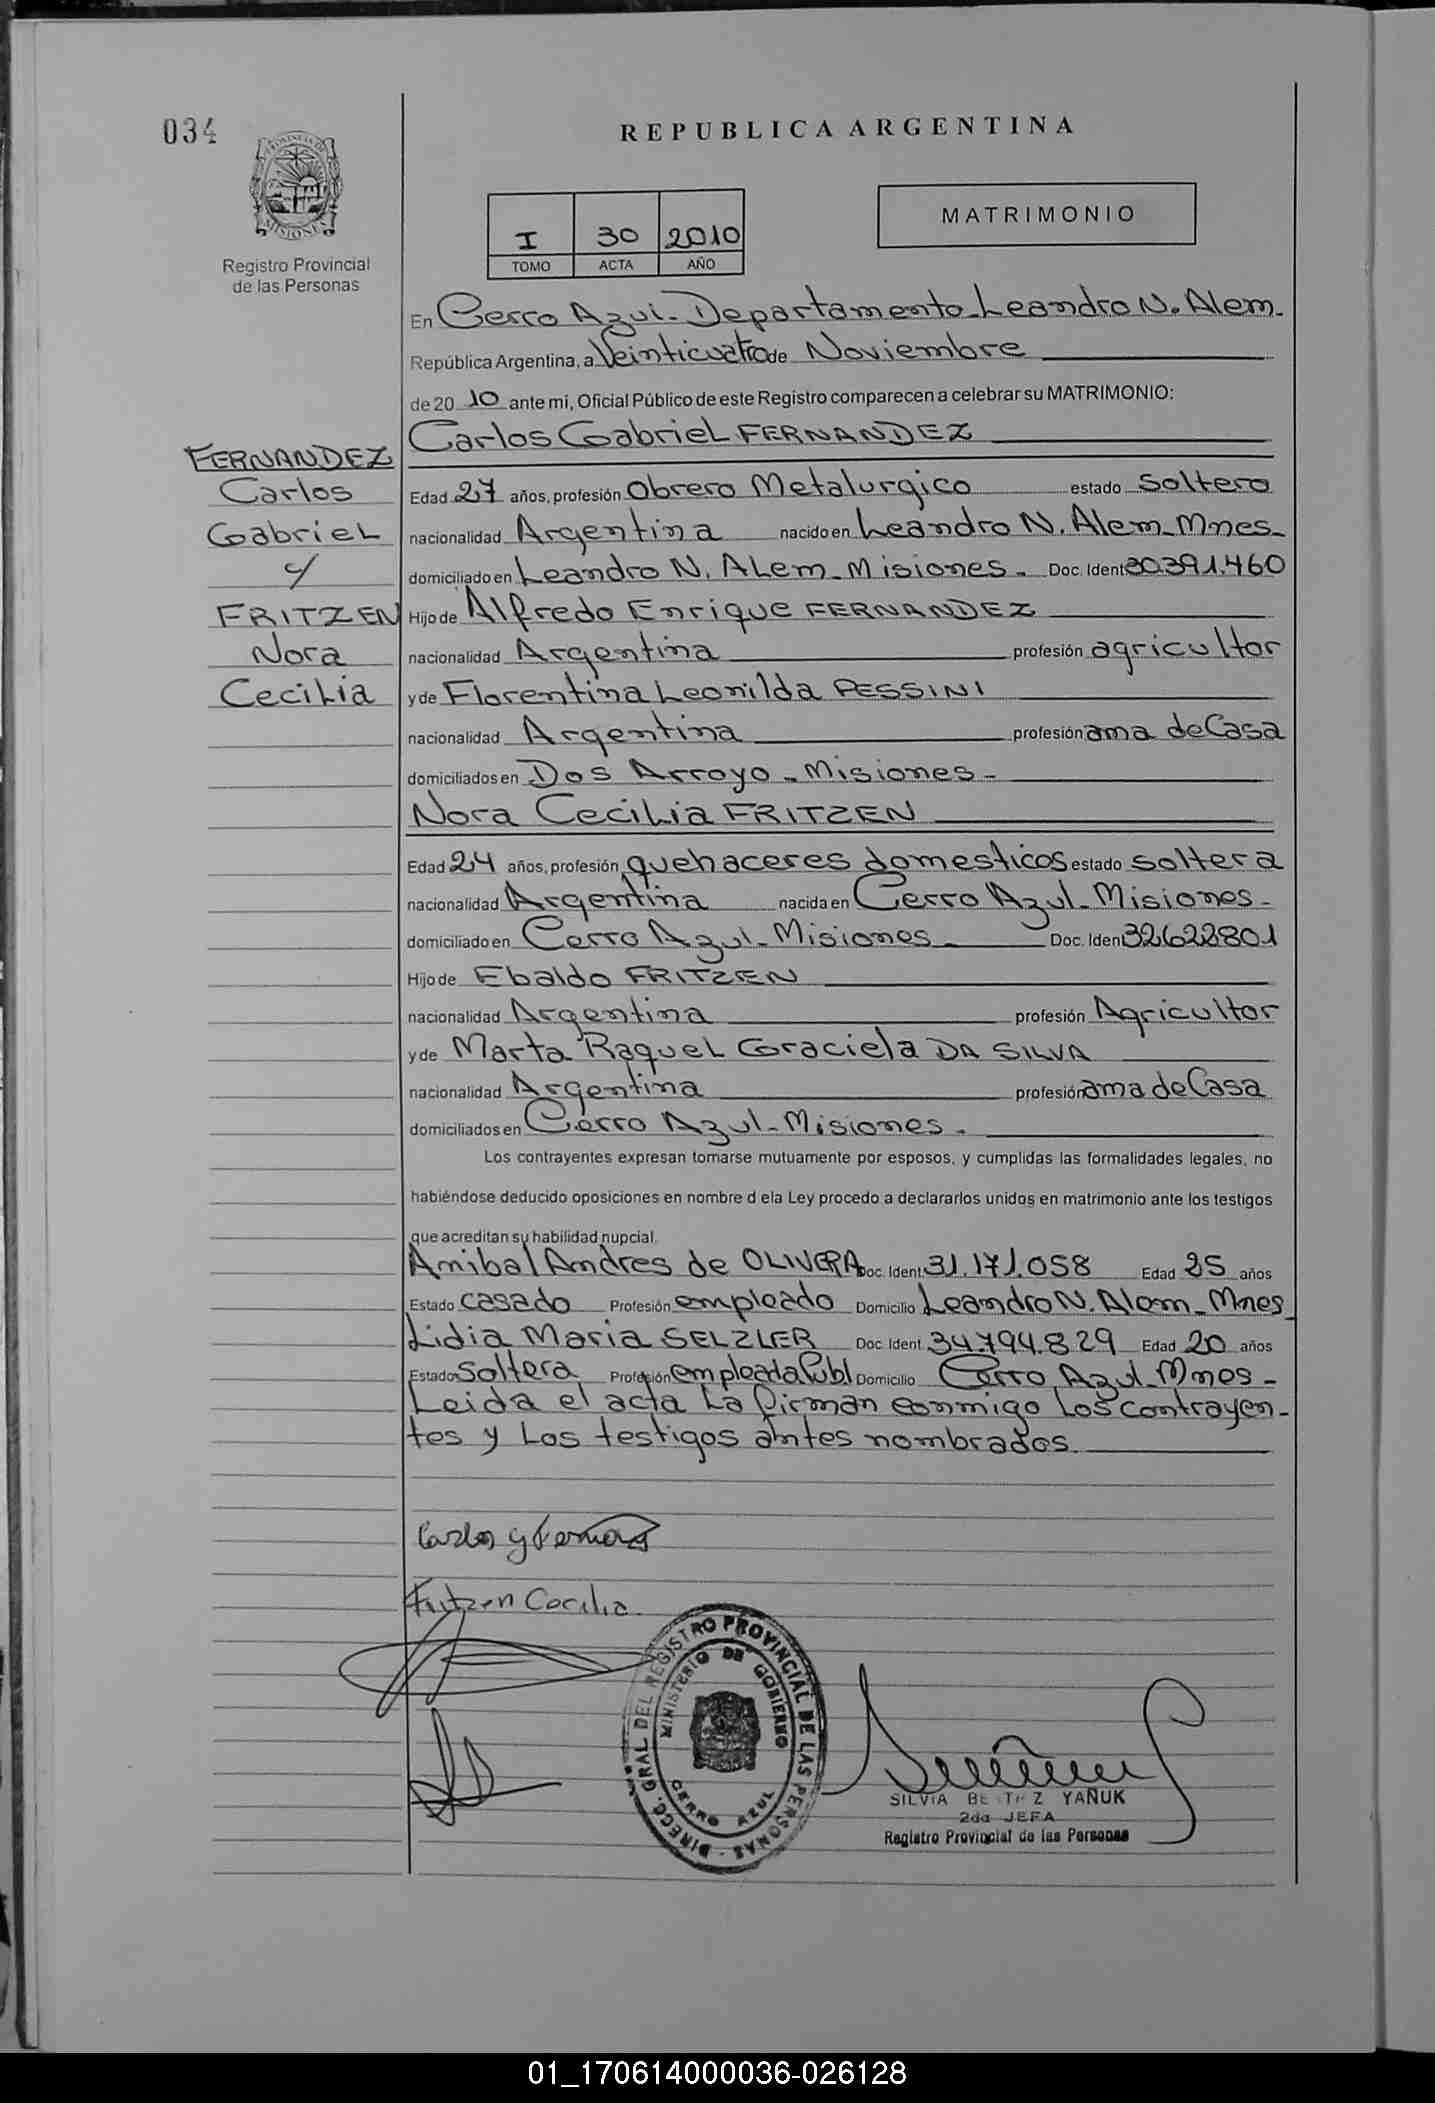 034
REPUBLICA ARGENTINA
PROVINCIA DE
MISIONES
Registro Provincial
de las Personas
I 30 2010
TOMO ACTA AÑO
MATRIMONIO
En Cerro Azul. Departamento Leandro N. Alem.
República Argentina, a Veinticuatro de Noviembre
de 20 10 ante mi, Oficial Público de este Registro comparecen a celebrar su MATRIMONIO:
Carlos Gabriel FERNANDEZ
FERNANDEZ
Carlos
Gabriel
y
FRITZEN
Nora
Cecilia
Edad 27 años, profesión Obrero Metalurgico estado soltero
nacionalidad Argentina nacido en Leandro N. Alem_Mnes_
domiciliado en Leandro N. ALem_Misiones. Doc. Ident 30.391.460
Hijo de Alfredo Enrique FERNANDEZ
nacionalidad Argentina profesión agricultor
y de Florentina Leonilda PESSINI
nacionalidad Argentina profesión ama de Casa
domiciliados en Dos Arroyo_Misiones_
Nora Cecilia FRITZEN
Edad 24 años, profesión quehaceres domesticos estado soltera
nacionalidad Argentina nacida en Cerro Azul_Misiones_
domiciliado en Cerro Azul_Misiones_ Doc. Iden 32622801
Hijo de Ebaldo FRITZEN
nacionalidad Argentina profesión Agricultor
y de Marta Raquel Graciela DA SILVA
nacionalidad Argentina profesión ama de Casa
domiciliados en Cerro Azul_Misiones.
Los contrayentes expresan tomarse mutuamente por esposos, y cumplidas las formalidades legales, no
habiéndose deducido oposiciones en nombre d ela Ley procedo a declararlos unidos en matrimonio ante los testigos
que acreditan su habilidad nupcial.
Anibal Andres de OLIVERA Doc. Ident. 31.171.058 Edad 25 años
Estado casado Profesión empleado Domicilio Leandro N. Alem_Mnes_
Lidia Maria SELZLER Doc. Ident. 34.794.829 Edad 20 años
Estado Soltera Profesión empleada Publ Domicilio Cerro Azul_Mnes_
Leida el acta La firman conmigo Los contrayen-
tes y Los testigos antes nombrados
Fritzen Cecilia
DIRECC. GRAL DEL REGISTRO PROVINCIAL DE LAS PERSONAS -
MINISTERIO DE GOBIERNO
CERRO AZUL
SILVIA BEATRIZ YAÑUK
2da JEFA
Registro Provincial de las Personas
01_170614000036-026128